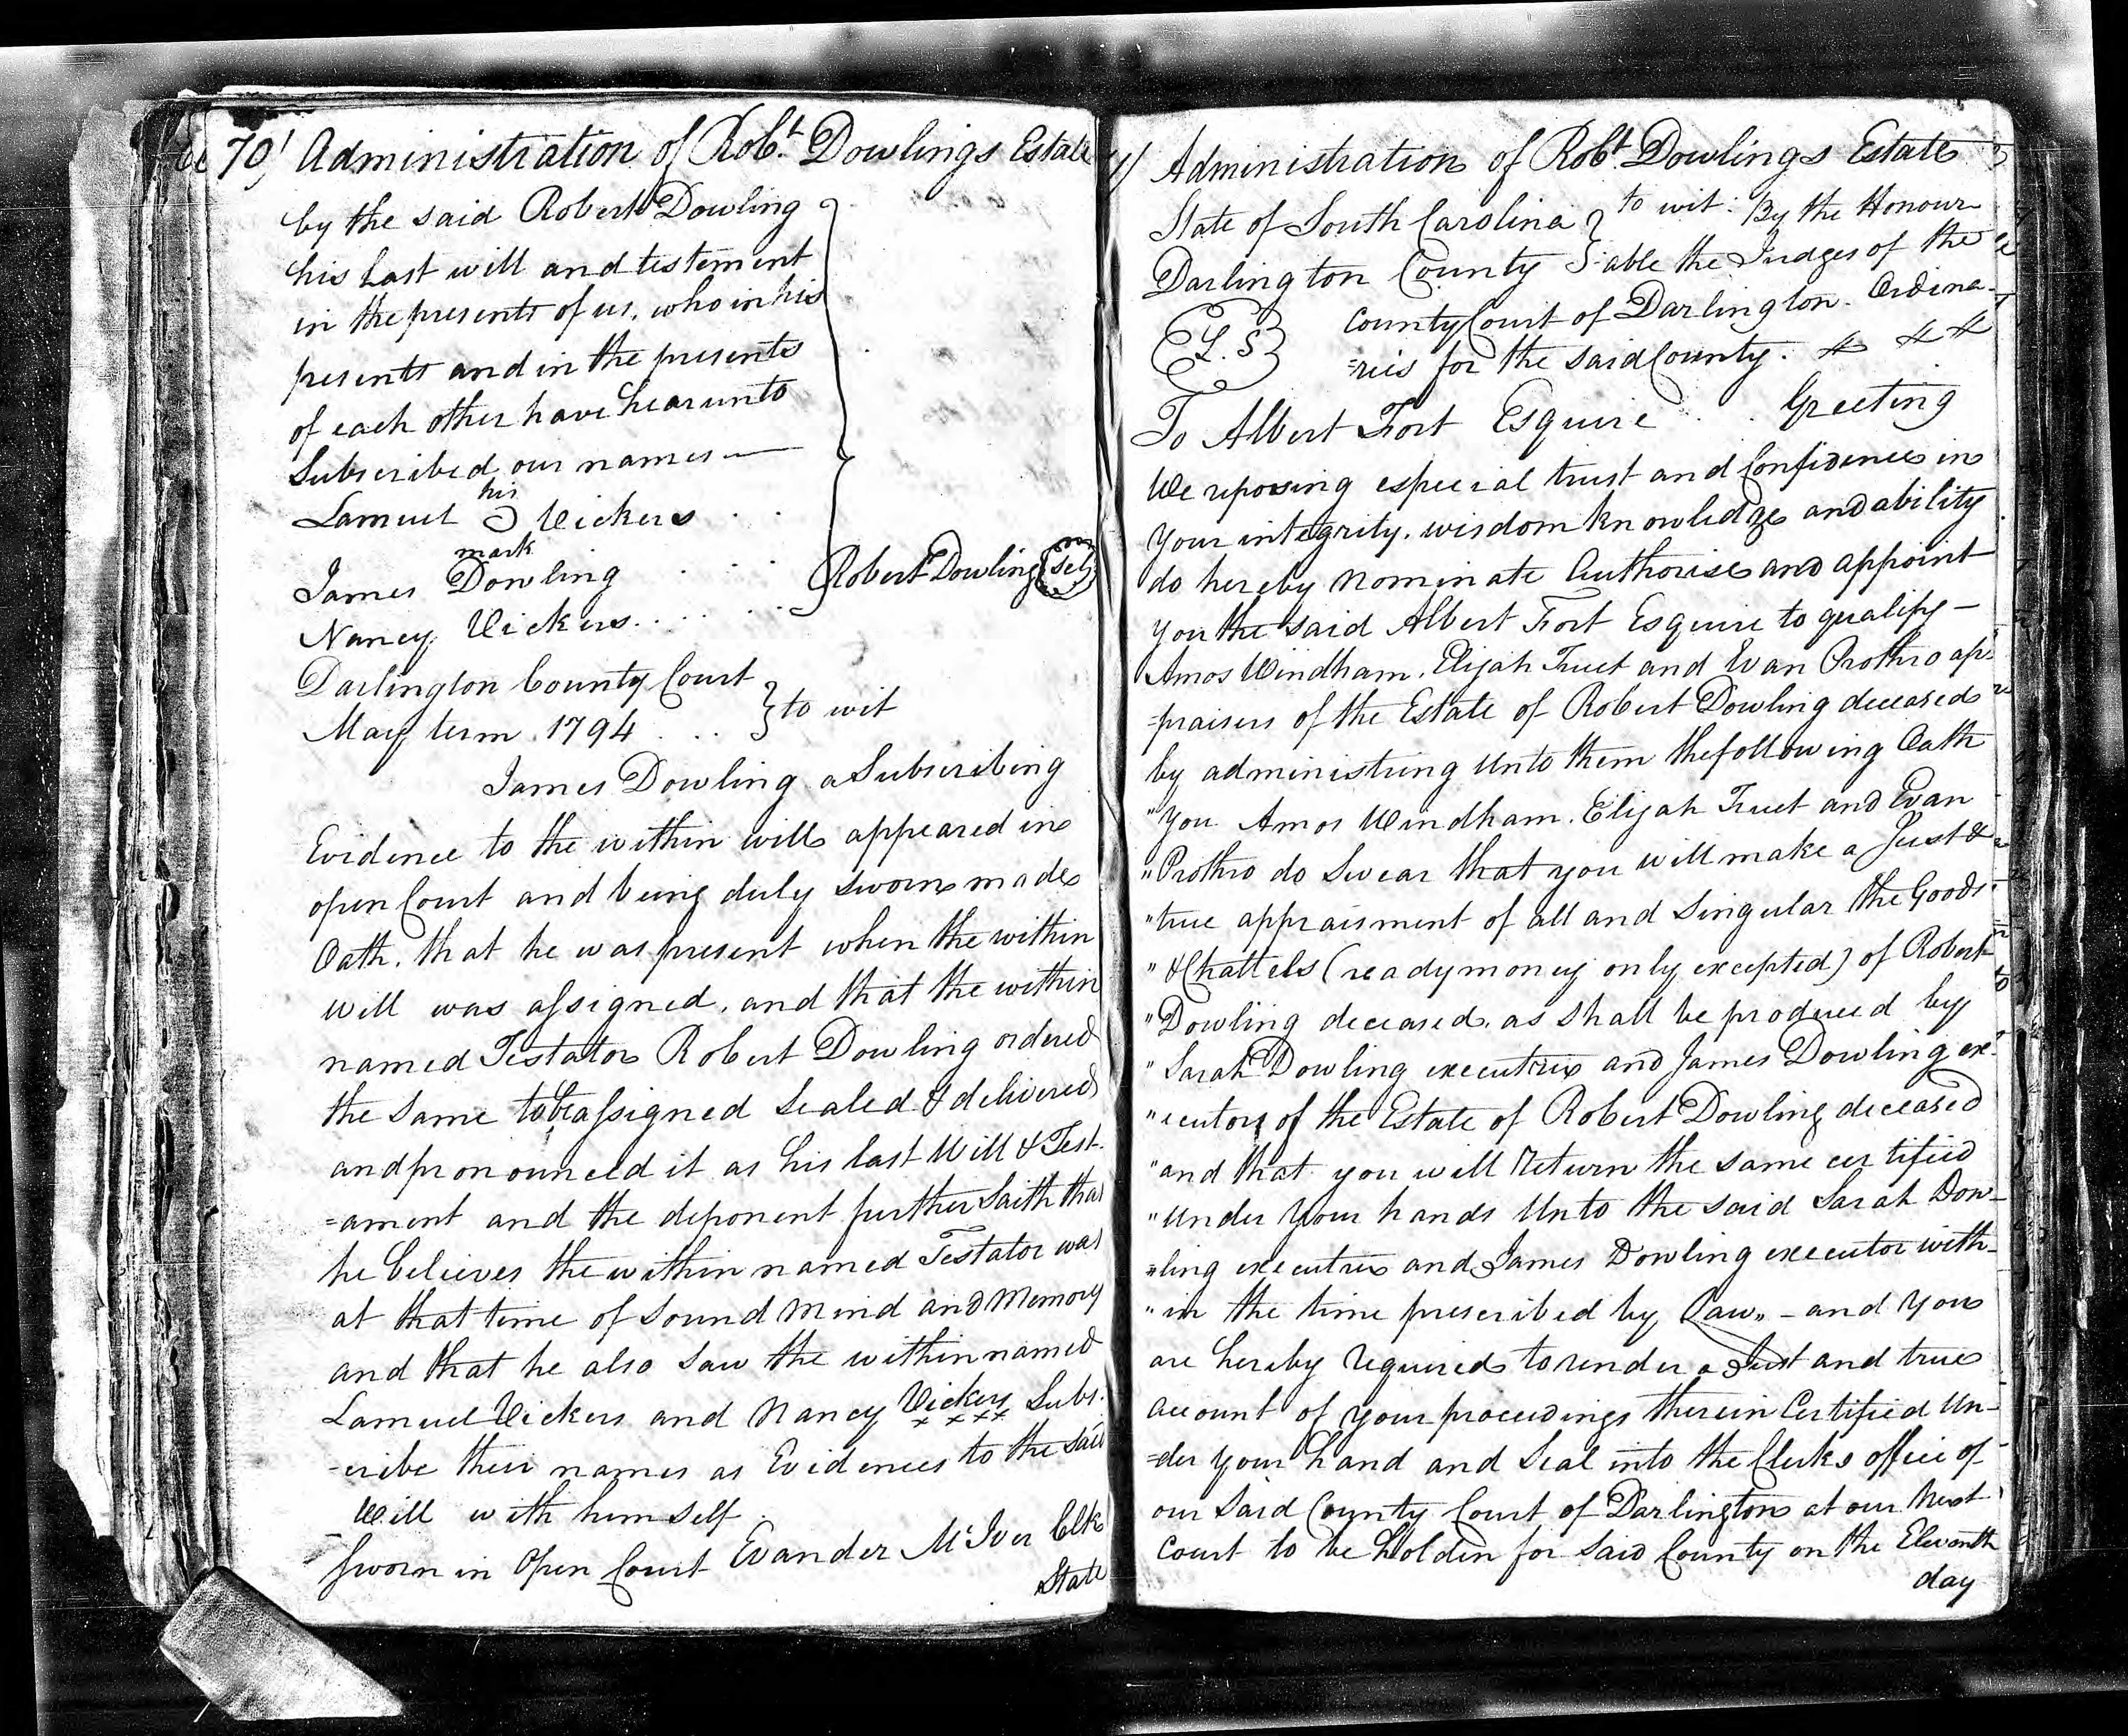 70) Administration of Robt. Dowlings Estate
by the said Robert Dowling
his Last will and testement
in the presents of us, who in his
presents and in the presents
of each other have hearunto
Subscribed our names —
his
Lamuel Ɔ Vickers . .
mark
James Dowling . . . Robert Dowling (Sel)
Nancy Vickers. . . .
Darlington County Court
May term 1794 . . . } to wit
James Dowling a Subscribing
Evidence to the within will appeared in
open Court and being duly sworn made
Oath, that he was present when the within
will was assigned, and that the within
named Testator Robert Dowling ordered
the same to be assigned sealed & delivered
and pronounced it as his last Will & Test-
=ament and the deponent further Saith that
he believes the within named Testator was
at that time of sound mind and Memory
and that he also saw the within named
Lamuel Vickers and Nancy Vickers Subs-
-cribe their names as Evidences to the said
Will with himself.
Sworn in Open Court Evander McIver Clk
State
Administration of Robt. Dowlings Estate
State of South Carolina } to wit: By the Honour-
Darlington County } able the Judges of the
County Court of Darlington. Ordina-
(L. S) =ries for the said County.
To Albert Fort Esquire . . Greeting
We reposing especial trust and Confidence in
your integrity, wisdom knowledge and ability
do hereby nominate Authorise and appoint
you the said Albert Fort Esquire to qualify —
Amos Windham, Elijah Truet and Evan Prothro ap-
=praisers of the Estate of Robert Dowling deceased
by administring Unto them the following Oath
"You Amos Windham, Elijah Truet and Evan
"Prothro do Swear that you will make a Just &
"true appraisment of all and Singular the Goods
"& Chattels (ready money only excepted) of Robert
"Dowling deceased, as shall be produced by
"Sarah Dowling executrix and James Dowling ex-
"ecutors of the Estate of Robert Dowling deceased
"and that you will return the same certified
"under your hands Unto the said Sarah Dow-
"ling executrix and James Dowling executor with-
"in the time prescribed by Law" - and you
are hereby required to render a Just and true
account of your proceedings therein Certified Un-
=der your hand and Seal into the Clerks office of
our said County Court of Darlington at our Next
Court to be Holden for said County on the Eleventh
day